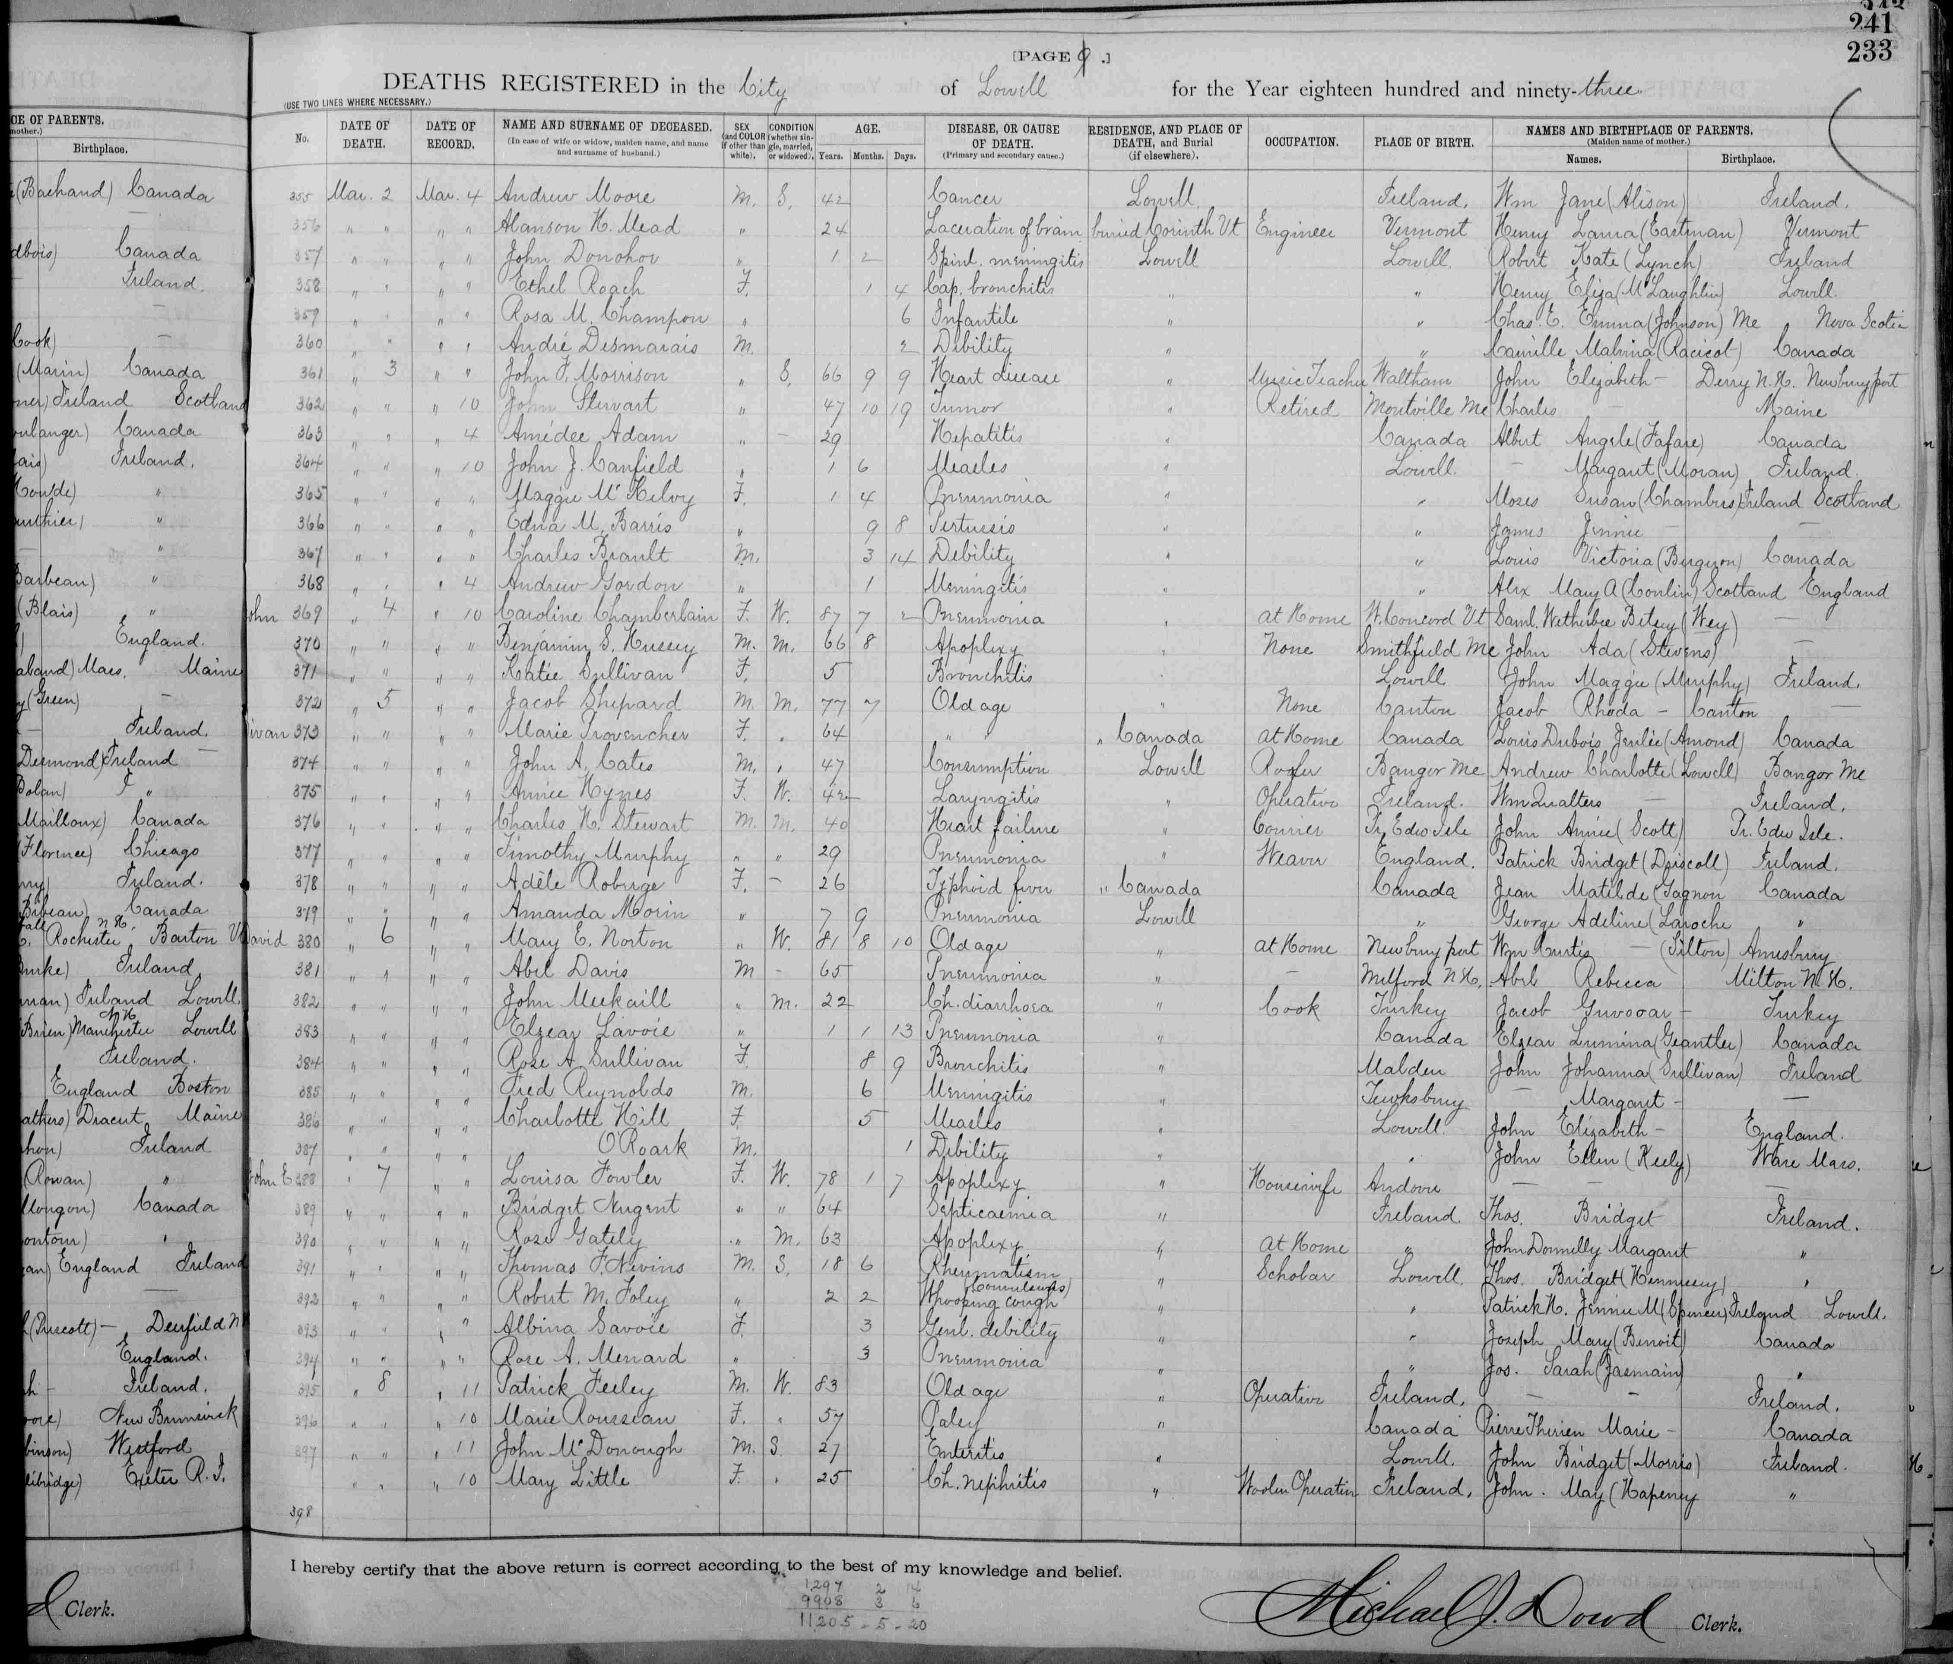 241
233
[PAGE 9.]
DEATHS REGISTERED in the City of Lowell for the Year eighteen hundred and ninety-three
(USE TWO LINES WHERE NECESSARY.)
No. DATE OF DEATH. DATE OF RECORD. NAME AND SURNAME OF DECEASED. (In case of wife or widow, maiden name, and name and surname of husband.) SEX (and COLOR if other than white). CONDITION (whether single, married, or widowed). AGE. Years. Months. Days. DISEASE, OR CAUSE OF DEATH. (Primary and secondary cause.) RESIDENCE, AND PLACE OF DEATH, and Burial (if elsewhere). OCCUPATION. PLACE OF BIRTH. NAMES AND BIRTHPLACE OF PARENTS. (Maiden name of mother.) Names. Birthplace.
355 Mar. 2 Mar. 4 Andrew Moore M. S. 42 Cancer Lowell Ireland. Wm Jane (Alison) Ireland.
356 " " " " Alanson H. Mead " 24 Laceration of brain buried Corinth Vt Engineer Vermont Henry Laura (Eastman) Vermont
357 " " " " John Donohoe " 1 2 Spinl. meningitis Lowell Lowell. Robert Kate (Lynch) Ireland
358 " " " " Ethel Roach F. 1 4 Cap. bronchitis " " Henry Eliza (McLaughlin) Lowell.
359 " " " " Rosa M. Champon " 6 Infantile " " Chas. E. Emma (Johnson) Me Nova Scotia
360 " " " " André Desmarais M. 2 Debility " " Camille Malvina (Racicot) Canada
361 " 3 " " John F. Morrison " S. 66 9 9 Heart disease " Music Teacher Waltham John Elizabeth - Derry N.H. Newburyport
362 " " " 10 John Stewart " 47 10 19 Tumor " Retired Montville Me Charles - Maine
363 " " " 4 Amédee Adam " - 29 Hepatitis " Canada Albert Angele (Lafare) Canada
364 " " " 10 John J. Canfield " 1 6 Measles " Lowell - Margaret (Moran) Ireland.
365 " " " " Maggie McKelvy F. 1 4 Pneumonia " " Moses Susan (Chambers) Ireland Scotland
366 " " " " Edna M. Barris " 9 8 Pertussis " " James Jennie - -
367 " " " " Charles Brault M. 3 14 Debility " " Louis Victoria (Bergeron) Canada
368 " " " 4 Andrew Gordon " 1 Meningitis " " Alex Mary A (Conlin) Scotland England
369 " 4 " 10 Caroline Chamberlain F. W. 87 7 2 Pneumonia " at Home W. Concord Vt Saml. Wetherbee Betsey (Wey) -
370 " " " " Benjamin S. Hussey M. M. 66 8 Apoplexy " None Smithfield Me John Ada (Stevens) -
371 " " " " Katie Sullivan F. 5 Bronchitis " Lowell John Maggie (Murphy) Ireland.
372 " 5 " " Jacob Shepard M. M. 77 7 Old age " None Canton Jacob Rhoda - Canton -
373 " " " " Marie Provencher F. " 64 " " Canada at Home Canada Louis Dubois (Amond) Canada
374 " " " " John A. Cates M. " 47 Consumption Lowell Roofer Bangor Me Andrew Charlotte (Lowell) Bangor Me
375 " " " " Annie Hynes F. W. 42 Laryngitis " Operative Ireland. Wm Qualters - Ireland.
376 " " " " Charles H. Stewart M. M. 40 Heart failure " Pr. Edw Isle John Annie (Scott) Pr. Edw Isle.
377 " " " " Timothy Murphy " " 29 Pneumonia " Weaver England. Patrick Bridget (Driscoll) Ireland.
378 " " " " Adèle Roberge F. - 26 Typhoid fever " Canada Canada Jean Matilde (Gagnon Canada
379 " " " " Amanda Morin " 7 9 Pneumonia Lowell " George Adeline (Laroche "
380 " 6 " " Mary E. Norton " W. 81 8 10 Old age " at Home Newburyport Wm Curtis - (Tilton) Amesbury
381 " " " " Abel Davis M - 65 Pneumonia " - Milford N.H. Abel Rebecca Milton N.H.
382 " " " " John Meekaill " M. 22 Ch. diarrhoea " Cook Turkey Jacob - Turkey
383 " " " " Elzear Lavoie " 1 1 13 Pneumonia " Canada Elzear Lumina Canada
384 " " " " Rose A Sullivan F. 8 9 Bronchitis " Malden John Johanna (Sullivan) Ireland
385 " " " " Fred Reynolds M. 6 Meningitis " Tewksbury - Margaret - -
386 " " " " Charlotte Hill F. 5 Measles " Lowell John Elizabeth - England.
387 " " " " O'Roark M. 1 Debility " " John Ellen (Keely) Ware Mass.
388 " 7 " " Louisa Fowler F. W. 78 1 7 Apoplexy " Housewife Andover - - -
389 " " " " Bridget Nugent " " 64 Septicaemia " Ireland. Thos. Bridget Ireland.
390 " " " " Rose Gately " M. 63 Apoplexy " at Home " John Donnelly Margaret "
391 " " " " Thomas F. Nevins M. S. 18 6 Rheumatism " Scholar Lowell. Thos. Bridget (Hennessy) "
392 " " " " Robert M. Foley " 2 2 Whooping cough (Convulsions) " " Patrick H. Jennie M (Spencer) Ireland Lowell.
393 " " " " Albina Savoie F. 3 Genl. debility " " Joseph Mary (Benoit) Canada
394 " " " " Rose A. Menard " 3 Pneumonia " " Jos. Sarah (Jasmain) "
395 " 8 " 11 Patrick Feeley M. W. 83 Old age " Operative Ireland. - - Ireland.
396 " " " 10 Marie Rousseau F. " 57 Palsy " Canada Pierre Therien Marie - Canada
397 " " " 11 John McDonough M. S. 27 Enteritis " Lowell. John Bridget (Morris) Ireland.
" " " 10 Mary Little F. " 25 Ch. nephritis " Woolen Operative Ireland. John. May (Hapeney "
398
I hereby certify that the above return is correct according to the best of my knowledge and belief.
1297 2 14
9908 3 6
11205 - 5 - 20
Michael J. Dowd Clerk.
CE OF PARENTS.
mother.)
Birthplace.
(Bachand) Canada
Canada
Ireland.
Cook) -
(Marin) Canada
Ireland Scotland
Canada
Ireland.
"
"
"
"
(Blais) "
England.
Mass. Maine
(Green) -
Ireland.
Desmond) Ireland -
Mailloux) Canada
(Florence) Chicago
Ireland.
Canada
Rochester N.H. Barton Vt
Ireland
Ireland Lowell.
Brien) Manchester N.H. Lowell
Ireland.
England Boston
Dracut Maine
Ireland
(Rowan) "
Canada
"
England Ireland
(Prescott) - Deerfield N.H
England.
Ireland.
New Brunswick
Westford
Exeter R.I.
Clerk.